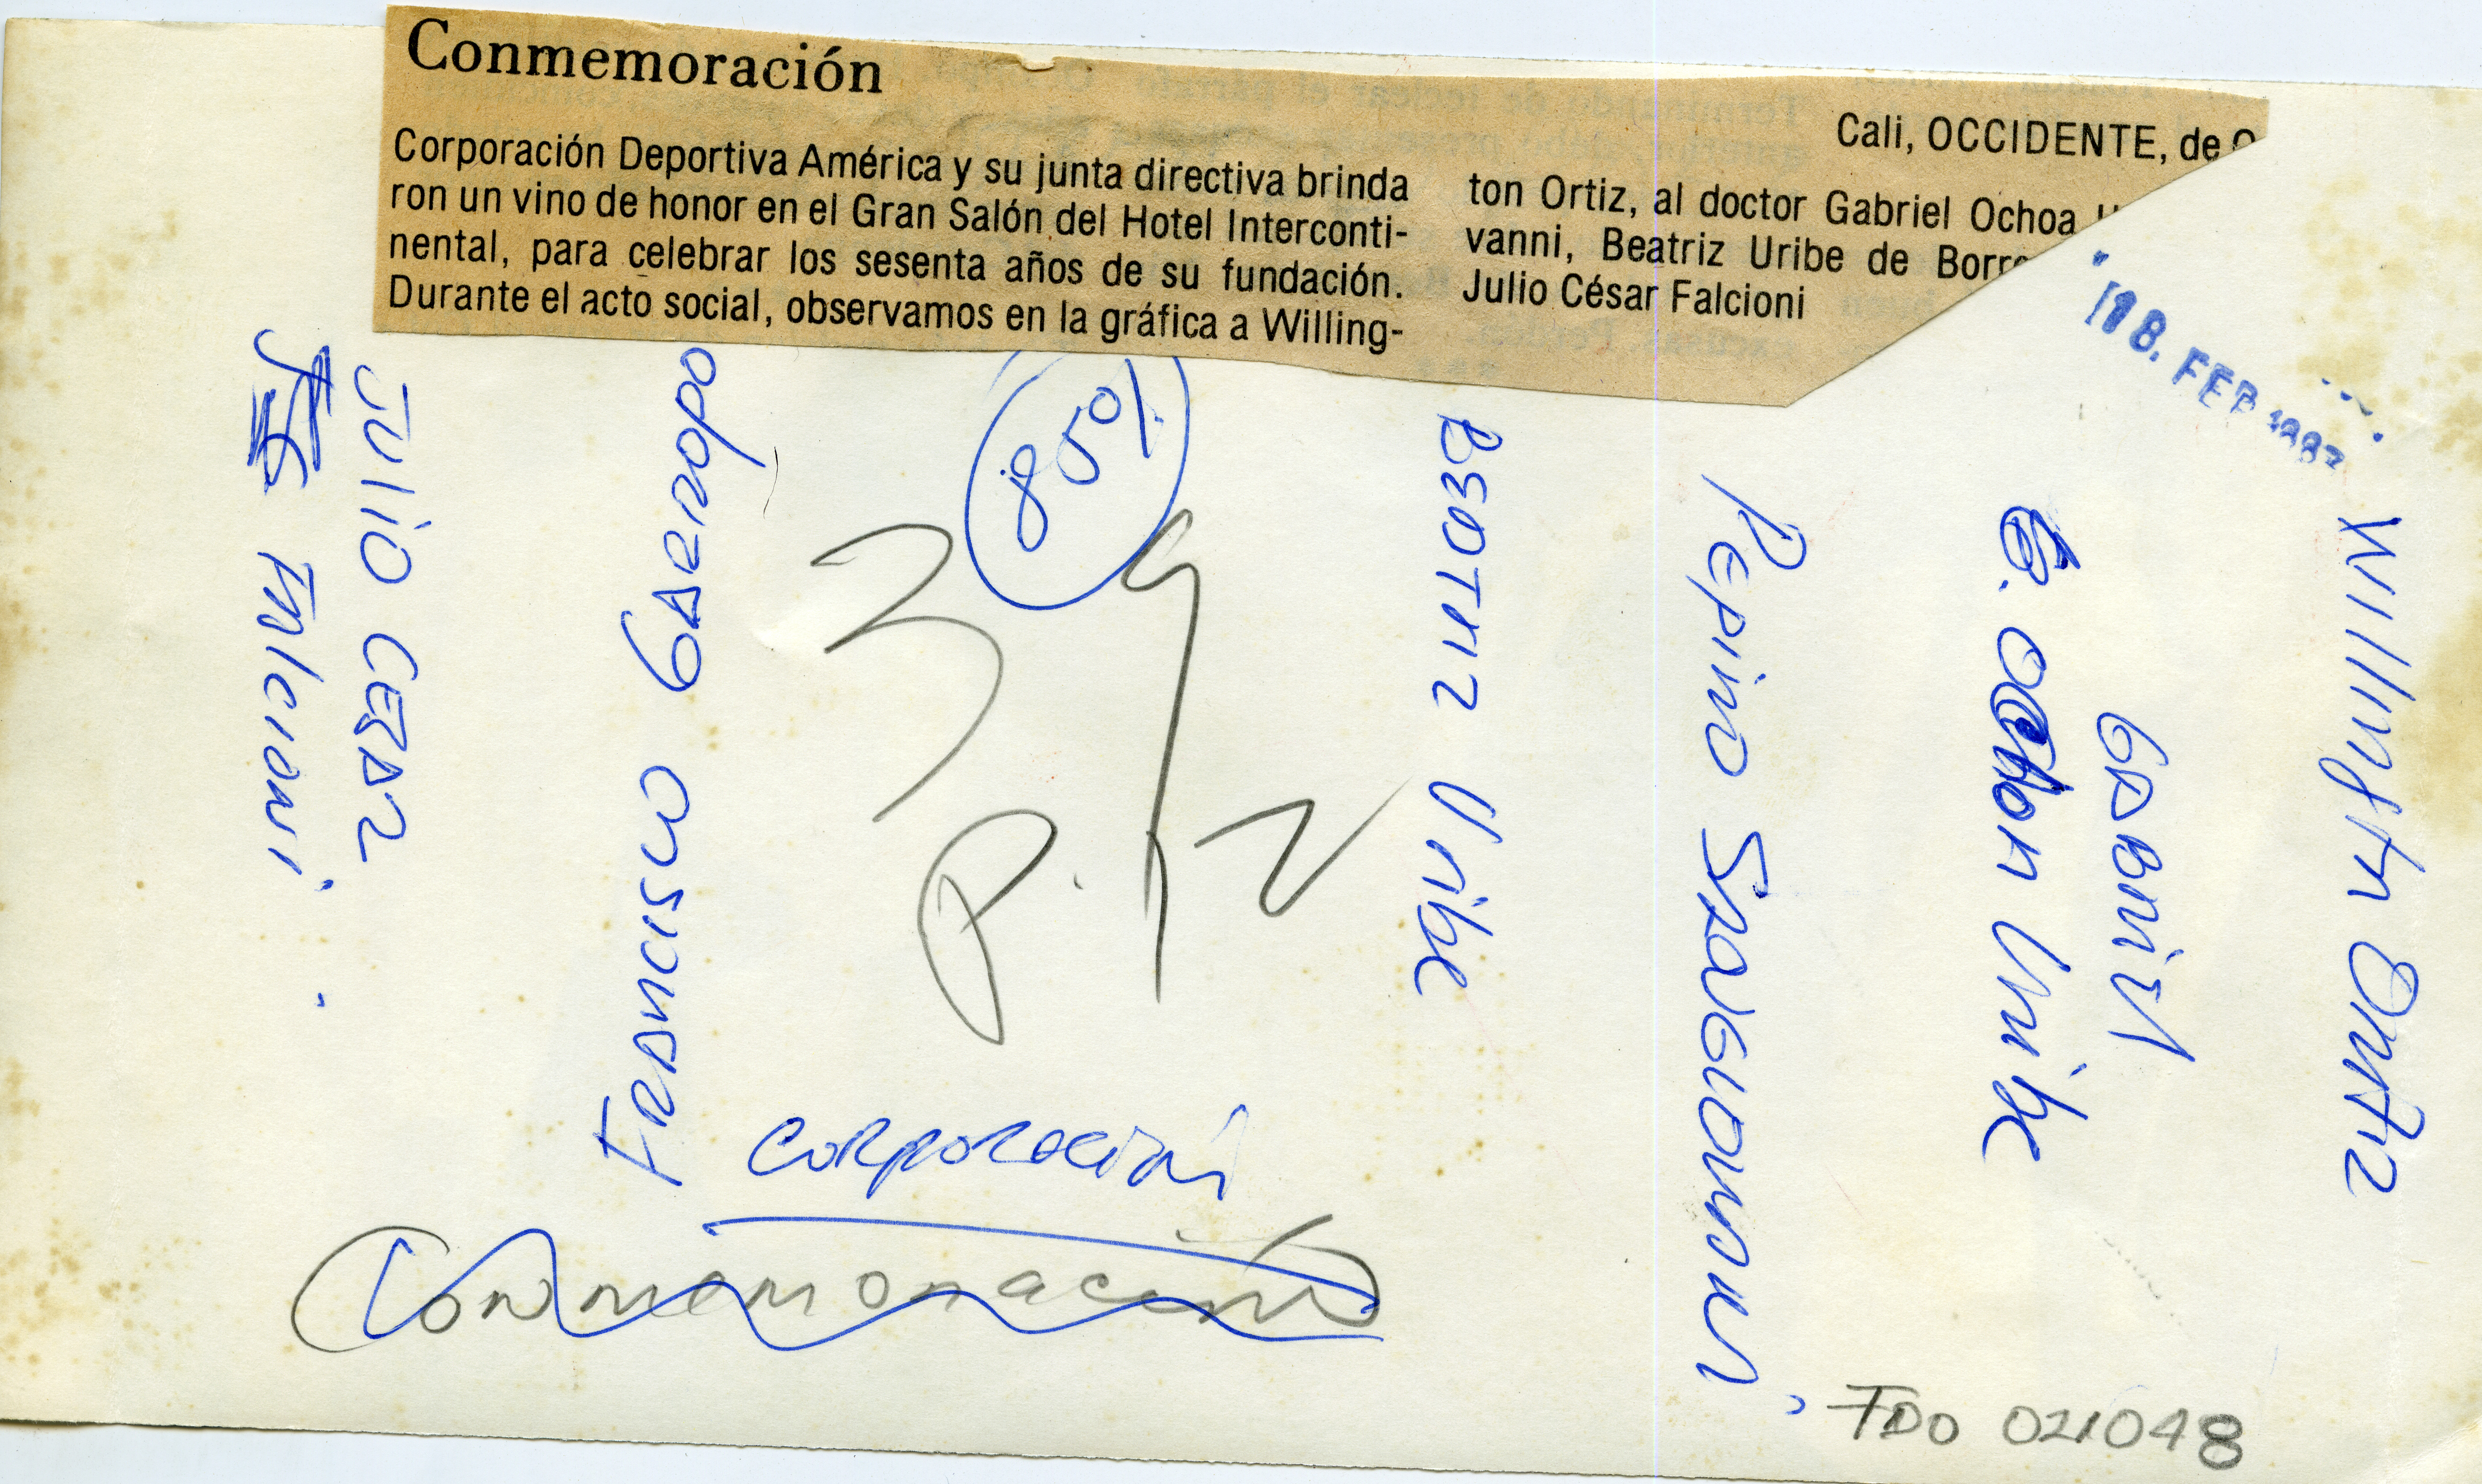 Conmemoración
Corporación Deportiva América y su junta directiva brinda
ron un vino de honor en el Gran Salón del Hotel Interconti-
nental, para celebrar los sesenta años de su fundación.
Durante el acto social, observamos en la gráfica a Willing-
Cali, OCCIDENTE, de
ton Ortiz, al doctor Gabriel Ochoa
vanni, Beatriz Uribe de Borre
Julio César Falcioni
18. FEB 1987
Willington Ortiz
Gabriel
G. Ochoa Uribe
Pepino Sangiovanni
Beatriz Uribe
85%
39
P. 12
Francisco
Julio Cesar
Falcioni.
Corporación
Conmemoración
FDO 021048